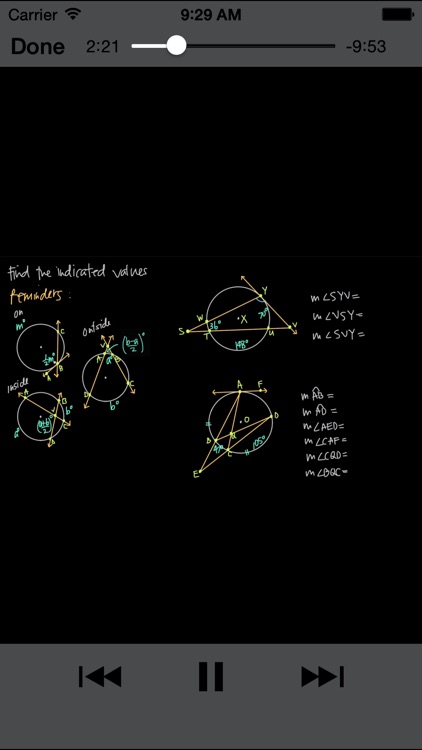 Carrier 9:29 AM
Done 2:21 -9:53
Find the indicated values
Reminders:
on
m°
C
½m°
A
B
outside
V
(b-a/2)°
A
a°
B
D
C
b°
inside
A
B
V
b°
(a+b/2)°
a°
D
C
Y
W
36°
70°
X
S
T
U
V
198°
m∠SYV=
m∠VSY=
m∠SVY=
A
F
O
D
B
Q
47°
C
105°
E
mAB=
mAD=
m∠AED=
m∠CAF=
m∠CQD=
m∠BQC=